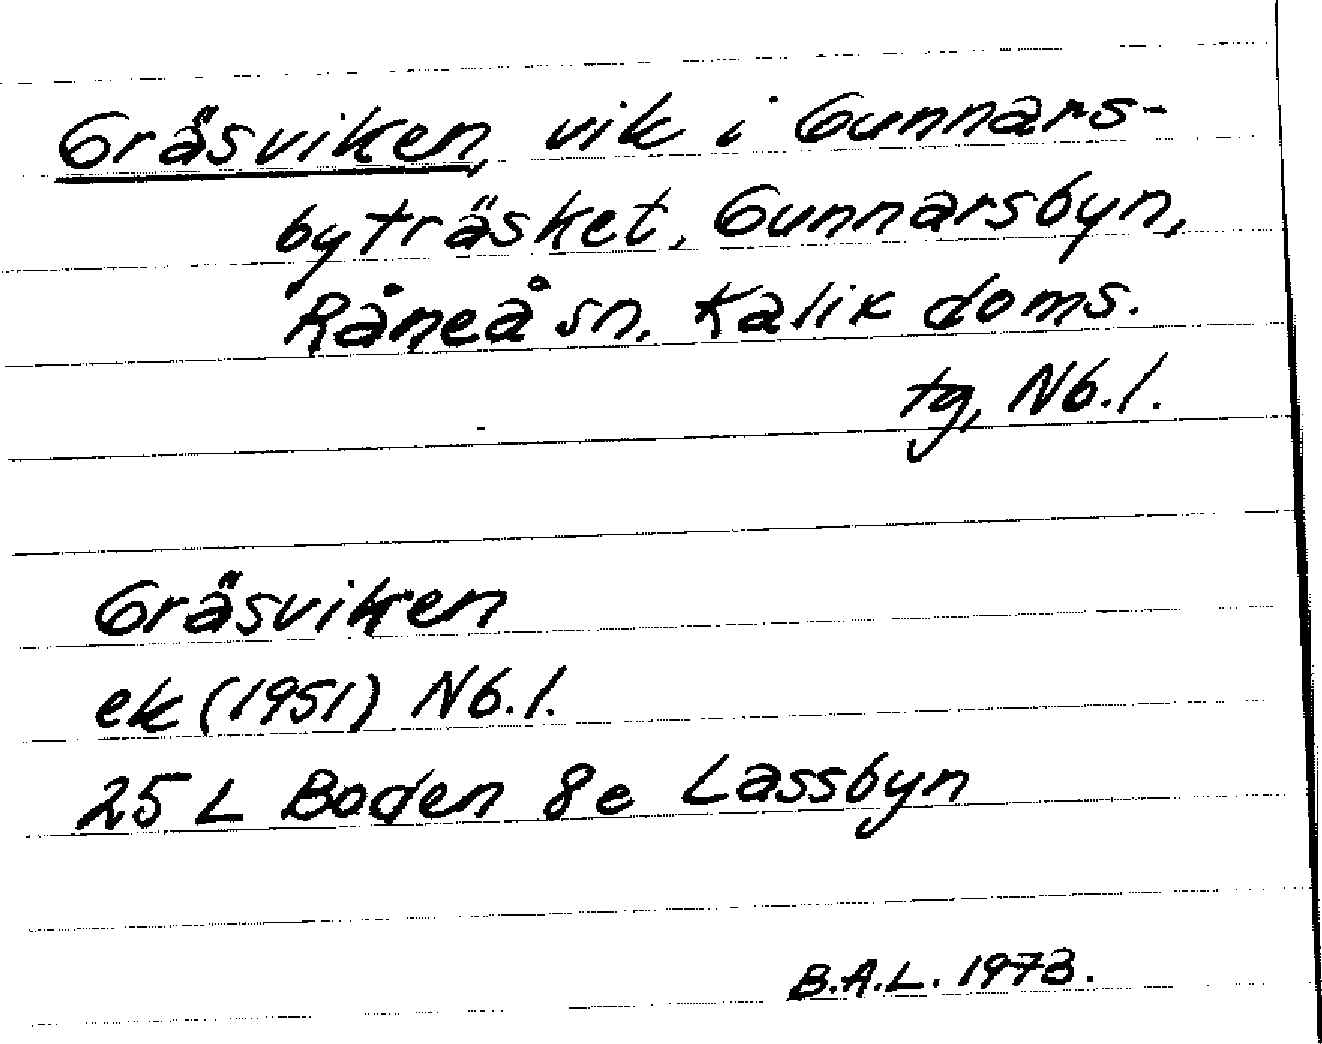 Gräsviken, vik i Gunnars-
byträsket, Gunnarsbyn,
Råneå sn, Kalix doms.
tg, Nb.l.
Gräsviken
ek (1951) Nb.l.
25 L Boden 8e Lassbyn
B.A.L. 1973.